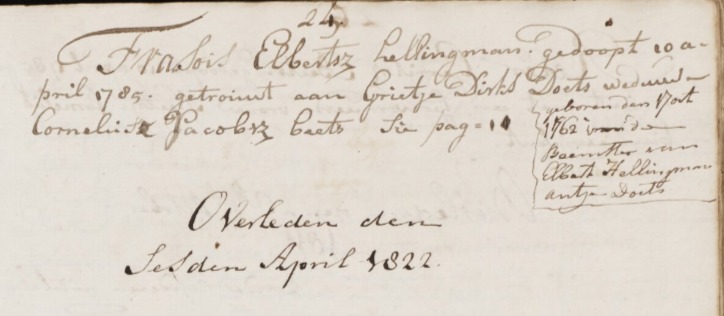 24
Frasois Elbertsz hellingman. gedoopt 10 a-
pril 1785. getrouwt aan Grietje Dirks Doets weduwe
Cornelisz Jacobsz beets Sie pag= 11
geboren den 17 oct
1762 in de
Beemster van
Elbert Hellingman
antje Doets
Overleden den
Sesden April 1822.